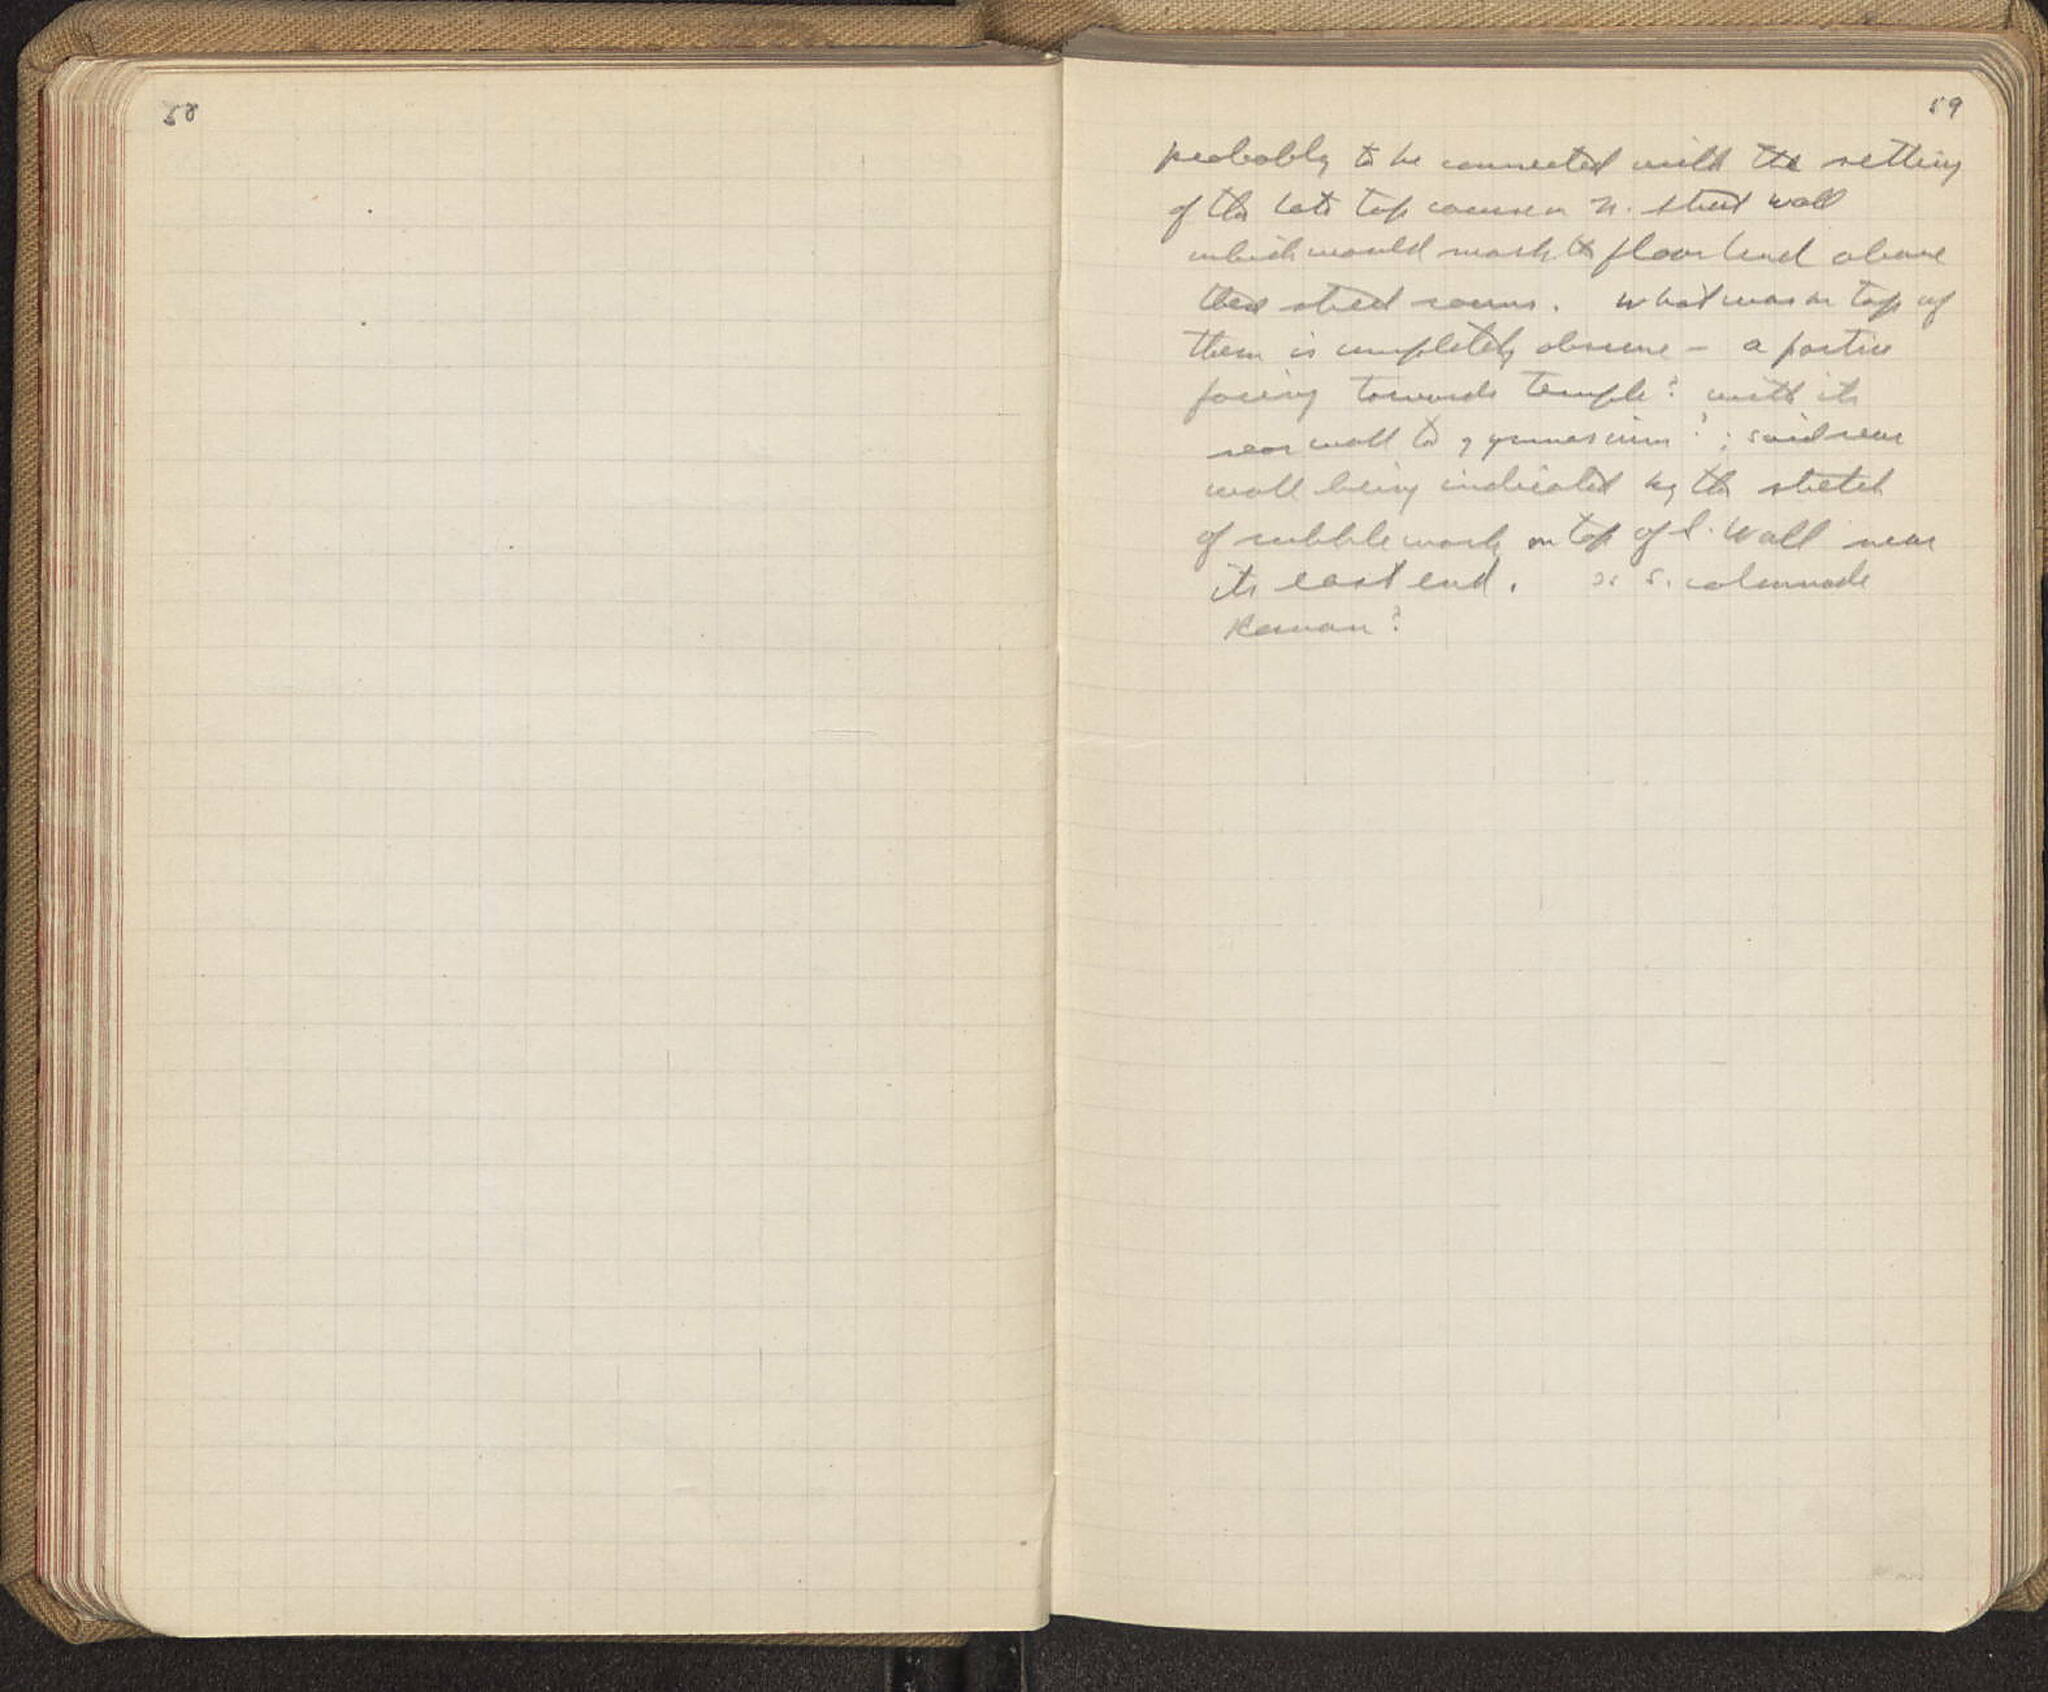 58
59
probably to be connected with the setting
of the late top course on N. street wall
which would mark the floor level above
these street rooms. What was on top of
them is completely obscure – a portico
facing towards temple? with its
rear wall to gymnasium?; said rear
wall being indicated by the stretch
of rubble work on top of S. Wall near
its east end. Is S. colonnade
Roman?